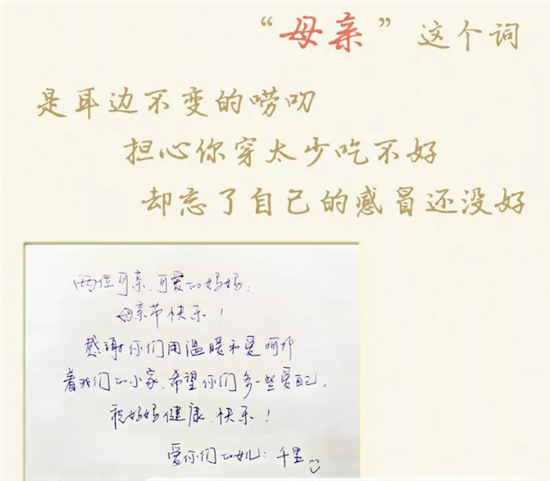 “母亲”这个词
是耳边不变的唠叨
担心你穿太少吃不好
却忘了自己的感冒还没好
两位可亲、可爱的妈妈:
母亲节快乐!
感谢你们用温暖和爱呵护
着我们的小家,希望你们多一些爱自己。
祝妈妈健康、快乐!
爱你们的女儿:千里